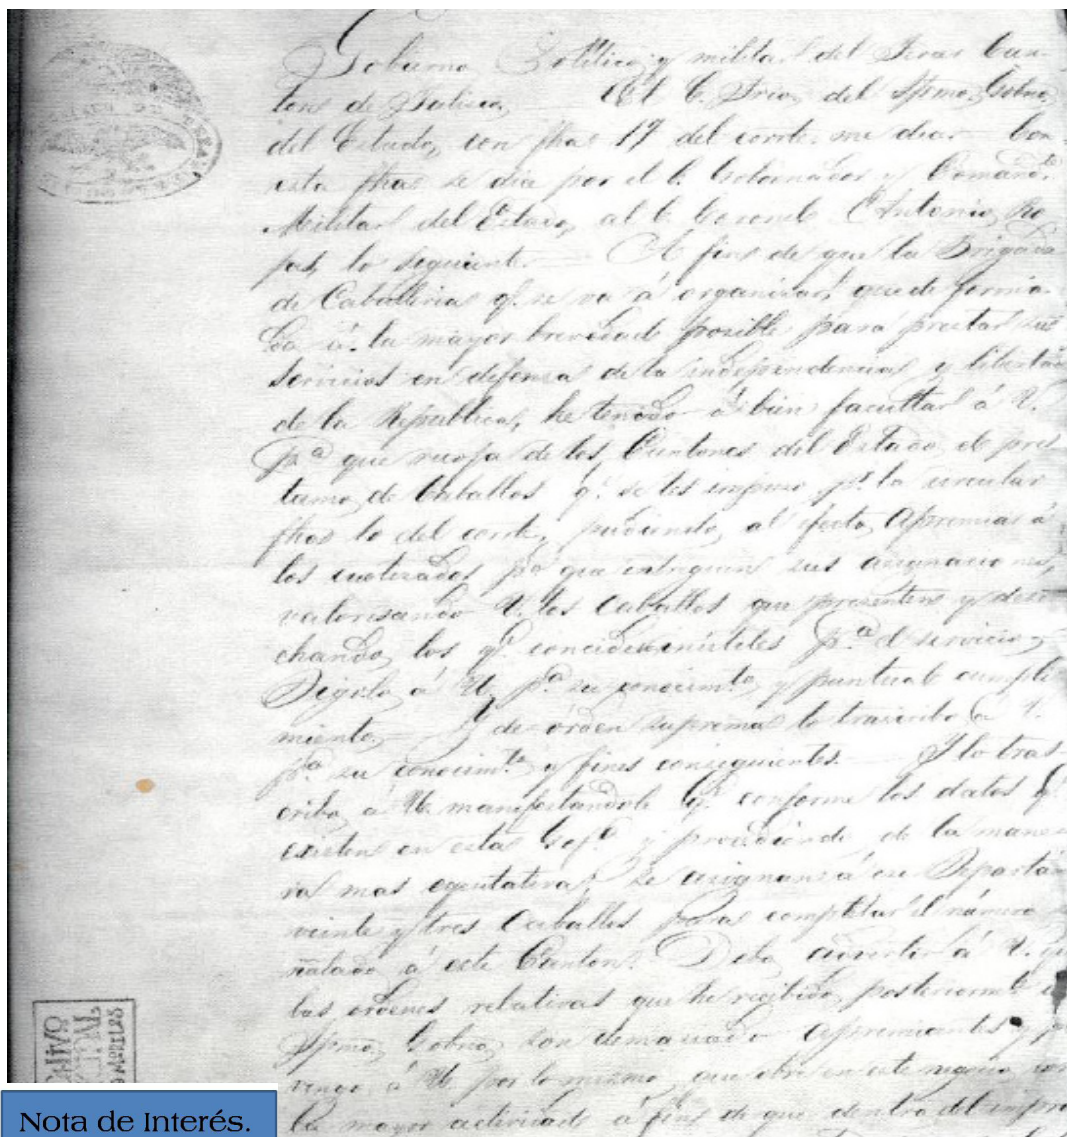 Gobierno Político y militar del Tercer Can-
ton de Jalisco. El C. Srio. del Spmo. Gobno.
del Estado, con fha 17 del corrte. me dice. Con
esta fha se dice por el C. Gobernador y Comandte.
Militar del Estado, al C. Coronel Antonio Ro-
jas, lo siguiente. A fin de que la Brigada
de Caballeria q. se va á organizar, quede forma-
da á la mayor brevedad posible para prestar sus
servicios en defensa de la independencia y libertad
de la Republica, he tenido á bien facultar á V.
pa. que recoja de los Cantones del Estado el pres-
tamo de Caballos q. se les impuso pr. la circular
fha 10 del corrte, pudiendo, al efecto, apremiar á
los cuotizados pa. que entreguen sus asignaciones,
valorisando V. los Caballos que presenten y dese-
chando los q. inutiles pa. el servicio.
Digolo á V. pa. su conocimto. y puntual cumpli-
miento. Y de órden suprema lo trascribo á V.
pa. su conocimto. y fines consiguientes. Y lo tras-
cribo á V. manifestandole q. conforme los datos q.
existen en esta Gefa. y procediendo de la mane-
ra mas equitativa, se asignan á ese Departamto
veinte y tres Caballos para completar el número se-
ñalado á este Canton. Debo advertir á V. que
las ordenes relativas que he recibido posteriormte. del
Spmo. Gobno. son demasiado apremiantes y
á V. por lo mismo, que obre en este negocio con
la mayor actividad á fin de que dentro del
ARCHIVO
MORELOS
Nota de Interés.